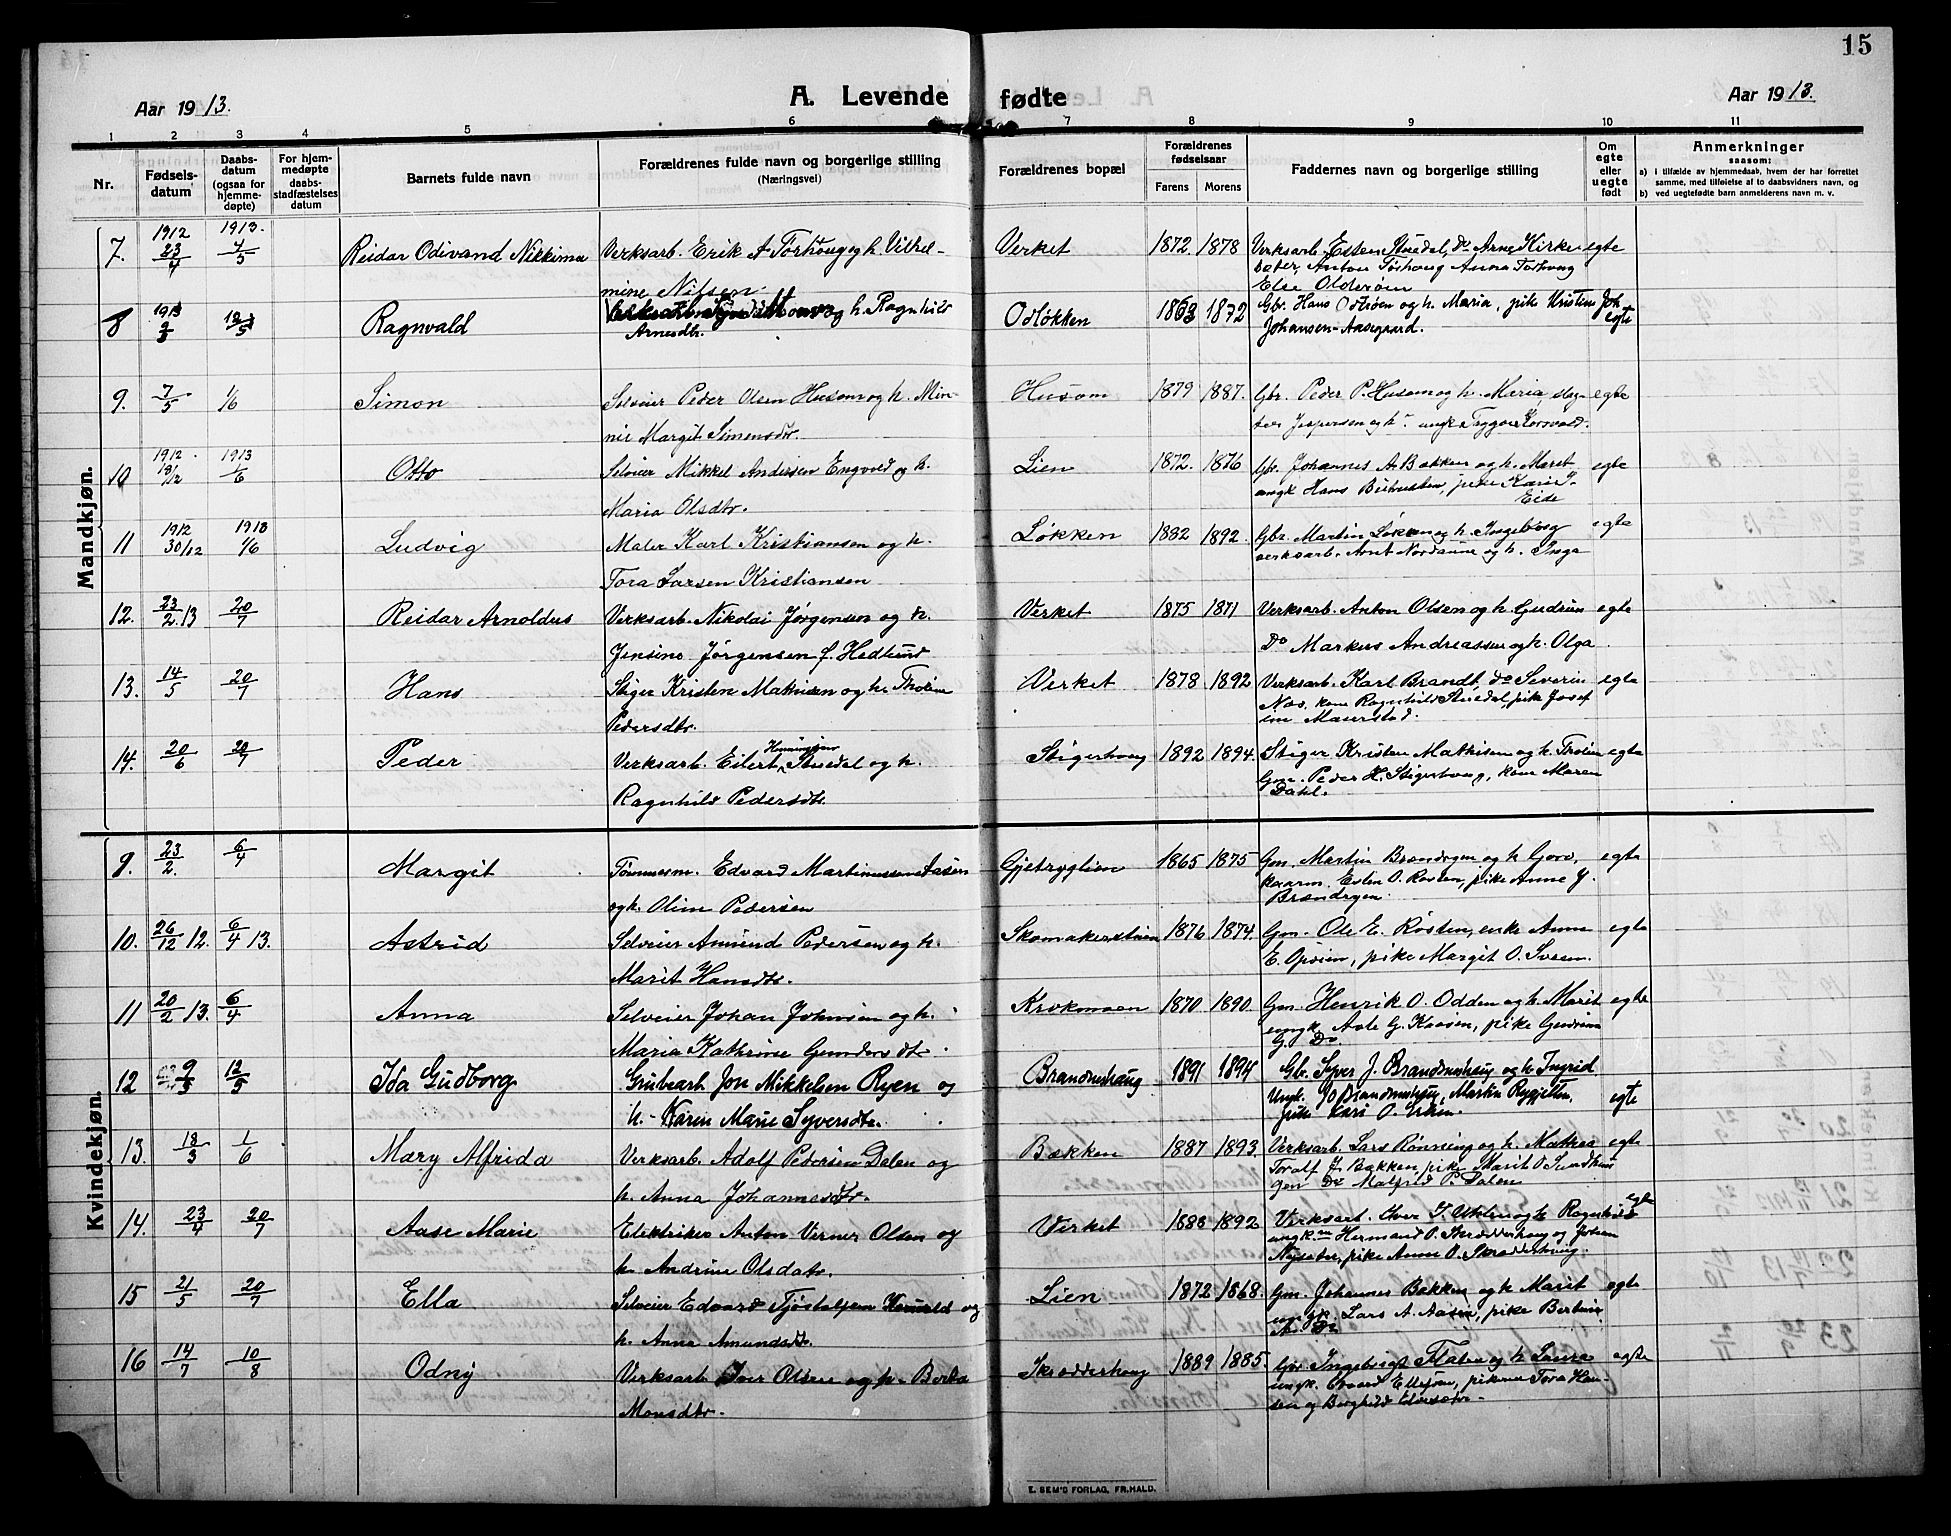 15
Aar 1913.
A. Levende fødte
Aar 1913.
1 2 3 4 5 6 7 8 9 10 11
Nr.
Fødsels-
datum
Daabs-
datum
(ogsaa for
hjemme-
døpte)
For hjem-
medøpte
daabs-
stadfæstelses
datum
Barnets fulde navn
Forældrenes fulde navn og borgerlige stilling
(Næringsvei)
Forældrenes bopæl
Forældrenes
fødselsaar
Farens Morens
Faddernes navn og borgerlige stilling
Om
egte
eller
uegte
født
Anmerkninger
saasom:
a) i tilfælde av hjemmedaab, hvem der har forrettet
samme, med tilføielse af to daabsvidners navn, og
b) ved uegtefødte barn anmelderens navn m. v.
Mandkjøn.
7. 1912 23/4 1913. 4/5 Reidar Odivand Nikkima Verksarb. Erik A Torhoug og h. Vilhel-
mine Nilsen. Verket 1872 1878 Verksarb. Esten Stuedal, Do Arne Kirke egte
Anton Torhoug Anna Torhoug
Else Olderøien
8 1913 Ragnvald og h. Ragnhild
Arnesdtr. Odløkken 1863 1872 Gbr. Hans Odløen og h. Maria, pike Kristine Joh
Johansen-Aasegaard. egte
9. 7/5 1/6 Simon Selveier Peder Olsen Husom og h. Min-
nie Margit Simensdtr. Husom 1879 1887. Gbr. Peder P. Husom og h. Maria, slag- egte
ter Jespersen og h. ungk. Trygve Korsvold.
10 1912 18/12 1913 1/6 Otto Selveier Mikkel Andersen Engvold og h.
Maria Olsdtr. Lien 1872. 1876 Gbr. Johannes A. Bakken og h. Marit egte
ungk Hans, pike Kari I.
Eide
11 1912 30/12 1913 1/6 Ludvig Maler Karl Kristiansen og h.
Tora Larsen Kristiansen Løkken 1882 1892. Gbr. Martin Løken og h. Ingeborg egte
verksarb. Arnt og h. Inga
12. 23/2 13 20/7 Reidar Arnoldus Verksarb. Nikolai Jørgensen og h.
Jensine Jørgensen f. Hedlund Verket 1875 1871 Verksarb. Anton Olsen og h. Gudrun egte
Do Markus Andreassen og h. Olga
13. 14/5 20/7 Hans Stiger Kristen Mathisen og h. Thorine
Pedersdtr. Verket 1878 1892 Verksarb. Karl Brandt, do Severin egte
Næs, kone Ragnhild Stuedal, pike Josef
ine Maurstad.
14. 20/6 20/7 Peder Verksarb. Eilert Henningsen Stuedal og h.
Ragnhild Pedersdtr. Stigerhoug 1892 1894. Stiger Kristen Mathisen og h. Thorine egte
Gm. Peder H. Stigerhoug, kone Maren
Dahl.
Kvindekjøn.
9. 23/2. 6/4 Margit Tømmerm. Edvard Martinussen Aasen
og h. Oline Pedersen Gjetryglien 1865 1875 Gm. Martin Brændegen og h Goro, egte
kaarm. Esten O. Rosten, pike Anne J.
Brændegen
10. 26/12 12. 6/4 13. Astrid Selveier Amund Pedersen og h.
Marit Hansdtr. Skomakerstuen 1876 1874. Gm. Ole E. Røsten, enke Anne egte
E. Opøien, pike Margit O. Svean.
11 20/2 13. 6/4 Anna Selveier Johan Johnsen og h.
Maria Kathrine Gundersdtr. Krokmoen 1870 1890. Gm. Henrik O. Odden og h. Marit egte
ungk. Asle G. Kaasen, pike Gudrun
G. Do
12 9/3 12/5 Ida Gudborg Grubearb. Jon Mikkelsen Ryen og
h. Karen Marie Syversdtr. Brandmohaug 1891 1894 Gb. Syver J. Brandmohaug og h Ingrid
Ungk. Jo Brandmohaug, Martin Rygjetten, egte
pike Kari O.
13. 18/3 1/6 Mary Alfrida Verksarb. Adolf Pedersen Dalen og
h. Anna Johannesdtr. Bækken 1887 1893. Verksarb. Lars Rønning og h. Mathea egte
Toralf J. Bækken, pike Marit O Sundhau
gen Do Malfrid P. Dalen
14. 23/4 20/7 Aase Marie Elektriker Anton Verner Olsen og
h. Andrine Olsdatr. Verket 1888 1892. Verksarb. Iver I. og h. Ragnhild egte
ungk. Hermand O. Skrædderhaug og Johan
pike Anne O. Skrædderhaug.
15 21/5 20/7 Ella Selveier Edvard Tjøstolfsen og
h. Anna Amundsdtr. Lien 1872 1868. Gm. Johannes Bakken og h. Marit egte
ungk. Lars A. Aasen, pike Berthine
A. Do
16 14/7 10/8 Odny Verksarb. Iver Olsen og h. Berta
Monsdtr. Skrædderhoug 1889 1885. Gbr. Ingebrigt Flaten og h Laura egte
ungk. Edvard Ellefsen, pikene Tora Han-
sen og Borghild
E. SEM'S FORLAG, FR.HALD.